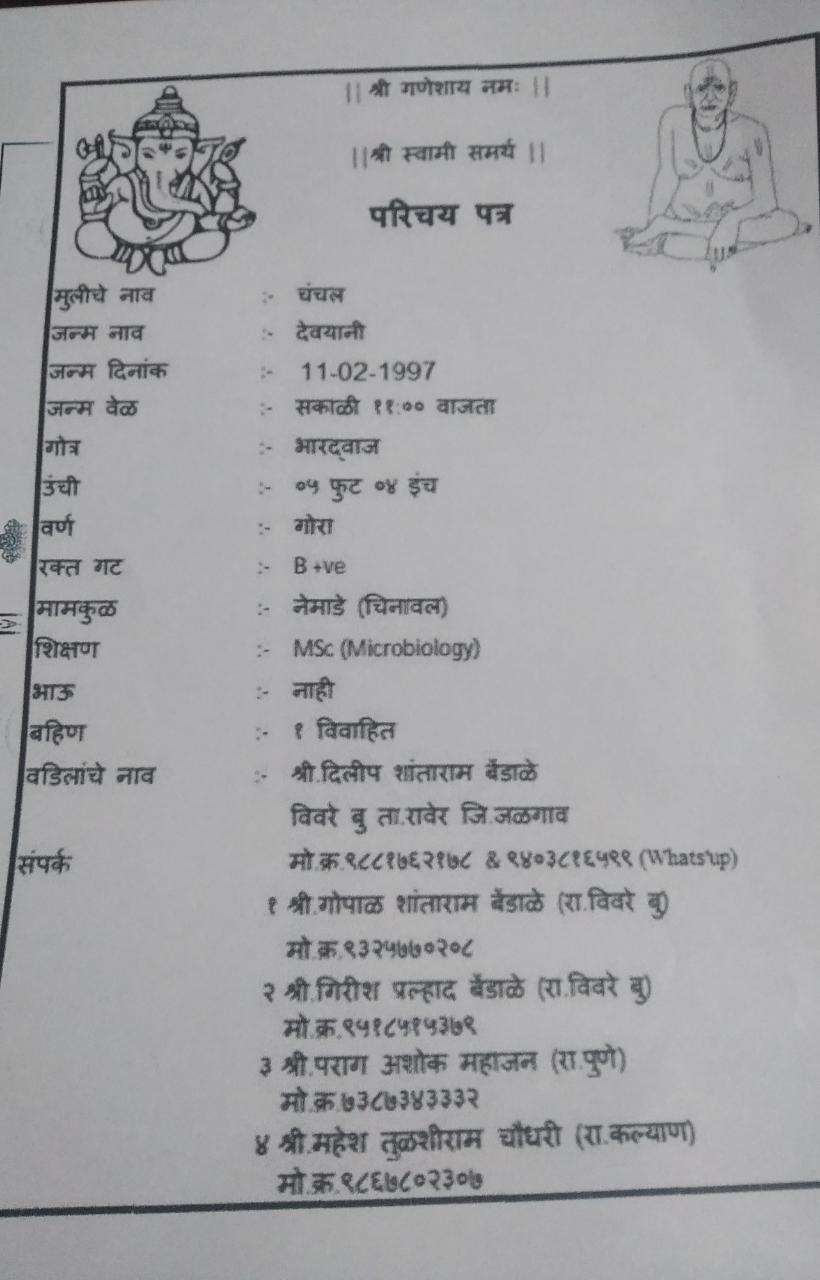 || श्री गणेशाय नमः ||
||श्री स्वामी समर्थ ||
परिचय पत्र
मुलीचे नाव :- चंचल
जन्म नाव :- देवयानी
जन्म दिनांक :- 11-02-1997
जन्म वेळ :- सकाळी ११:०० वाजता
गोत्र :- भारद्वाज
उंची :- ०५ फुट ०४ इंच
वर्ण :- गोरा
रक्त गट :- B +ve
मामकुळ :- नेमाडे (चिनावल)
शिक्षण :- MSc (Microbiology)
भाऊ :- नाही
बहिण :- १ विवाहित
वडिलांचे नाव :- श्री.दिलीप शांताराम बेंडाळे
विवरे बु ता.रावेर जि.जळगाव
संपर्क मो.क्र.९८८१७६२१७८ & ९४०३८१६५९९ (Whats'up)
१ श्री.गोपाळ शांताराम बेंडाळे (रा.विवरे बु)
मो.क्र.९३२५७७०२०८
२ श्री.गिरीश प्रल्हाद बेंडाळे (रा.विवरे बु)
मो.क्र.९५१८५१५३७९
३ श्री.पराग अशोक महाजन (रा.पुणे)
मो.क्र.७३८७३४३३३२
४ श्री.महेश तुळशीराम चौधरी (रा.कल्याण)
मो.क्र.९८६७८०२३०७